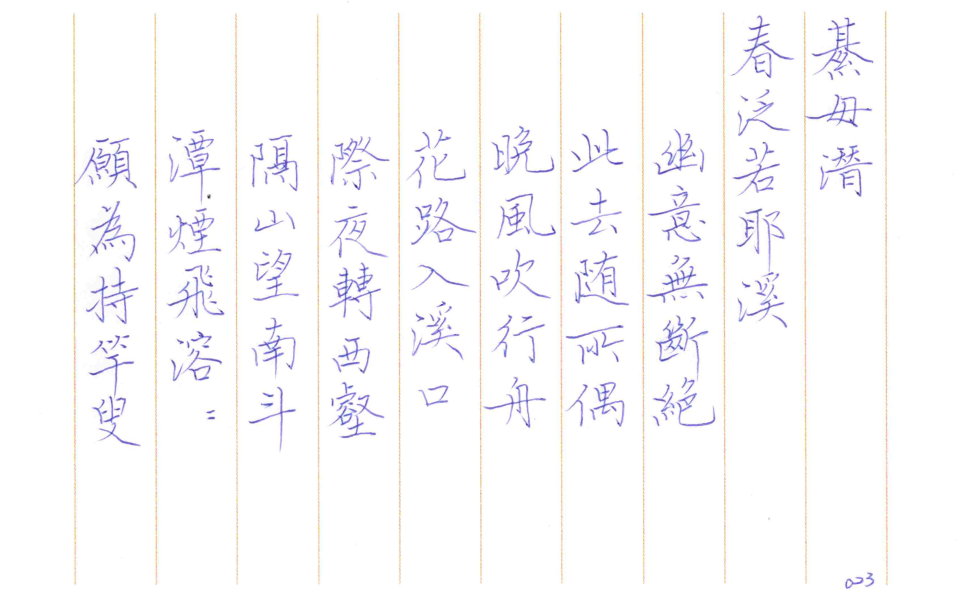 綦毋潛
春泛若耶溪
幽意無斷絕
此去隨所偶
晚風吹行舟
花路入溪口
際夜轉西壑
隔山望南斗
潭煙飛溶〻
願為持竿叟
023